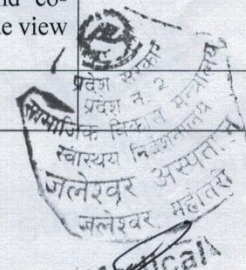 and co-
e view
प्रदेश सरकार
प्रदेश न. २
सामाजिक विकास मन्त्रालय
स्वास्थ्य निर्देशनालय
जलेश्वर अस्पताल
जलेश्वर महोत्तरी
ical